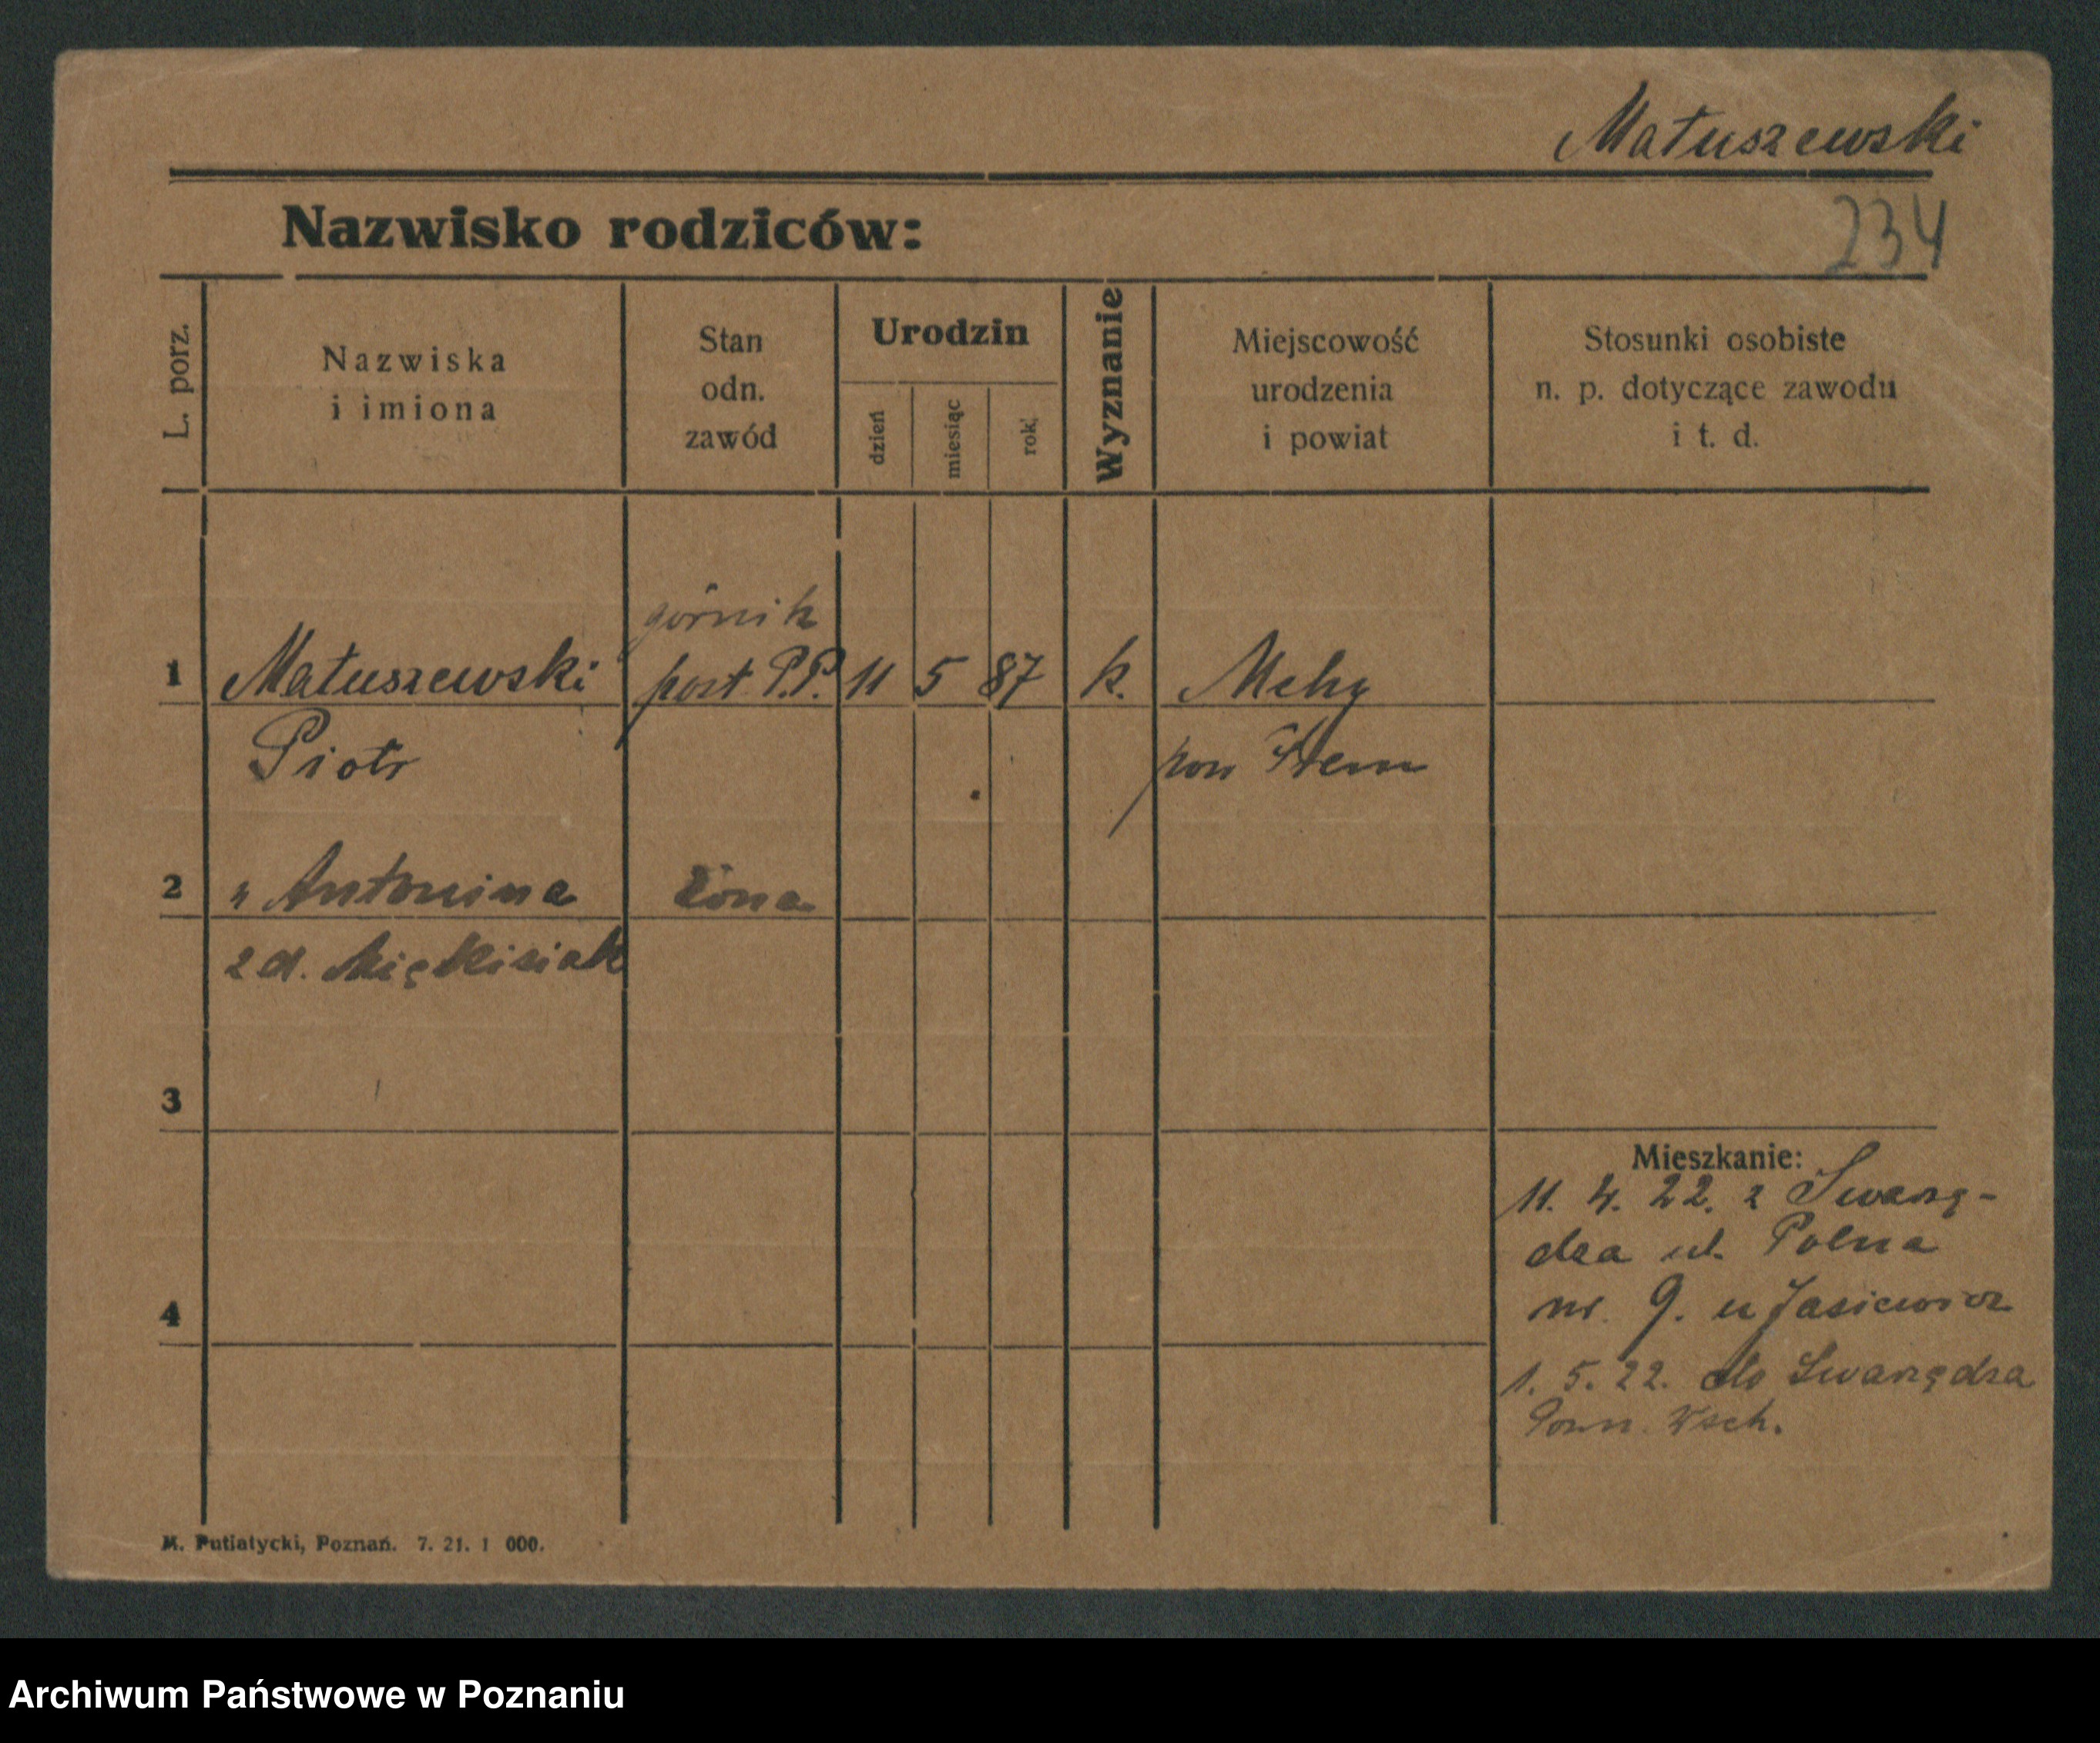 Matuszewski
Nazwisko rodziców:
234
L. porz.
Nazwiska
i imiona
Stan
odn.
zawód
Urodzin
dzień
miesiąc
rok
Wyznanie
Miejscowość
urodzenia
i powiat
Stosunki osobiste
n. p. dotyczące zawodu
i t. d.
górnik
1 Matuszewski post. P.P. 11 5 87 k. Mchy
Piotr pow Śrem
2 " Antonina żona
z d. Miękisiak
3
Mieszkanie:
11. 4. 22. z Swarzę-
dza ul. Polna
nr. 9. u Jasiewicz
4
1. 5. 22. do Swarzędza
Pozn. Wsch.
M. Putiatycki, Poznań. 7. 21. 1 000.
Archiwum Państwowe w Poznaniu